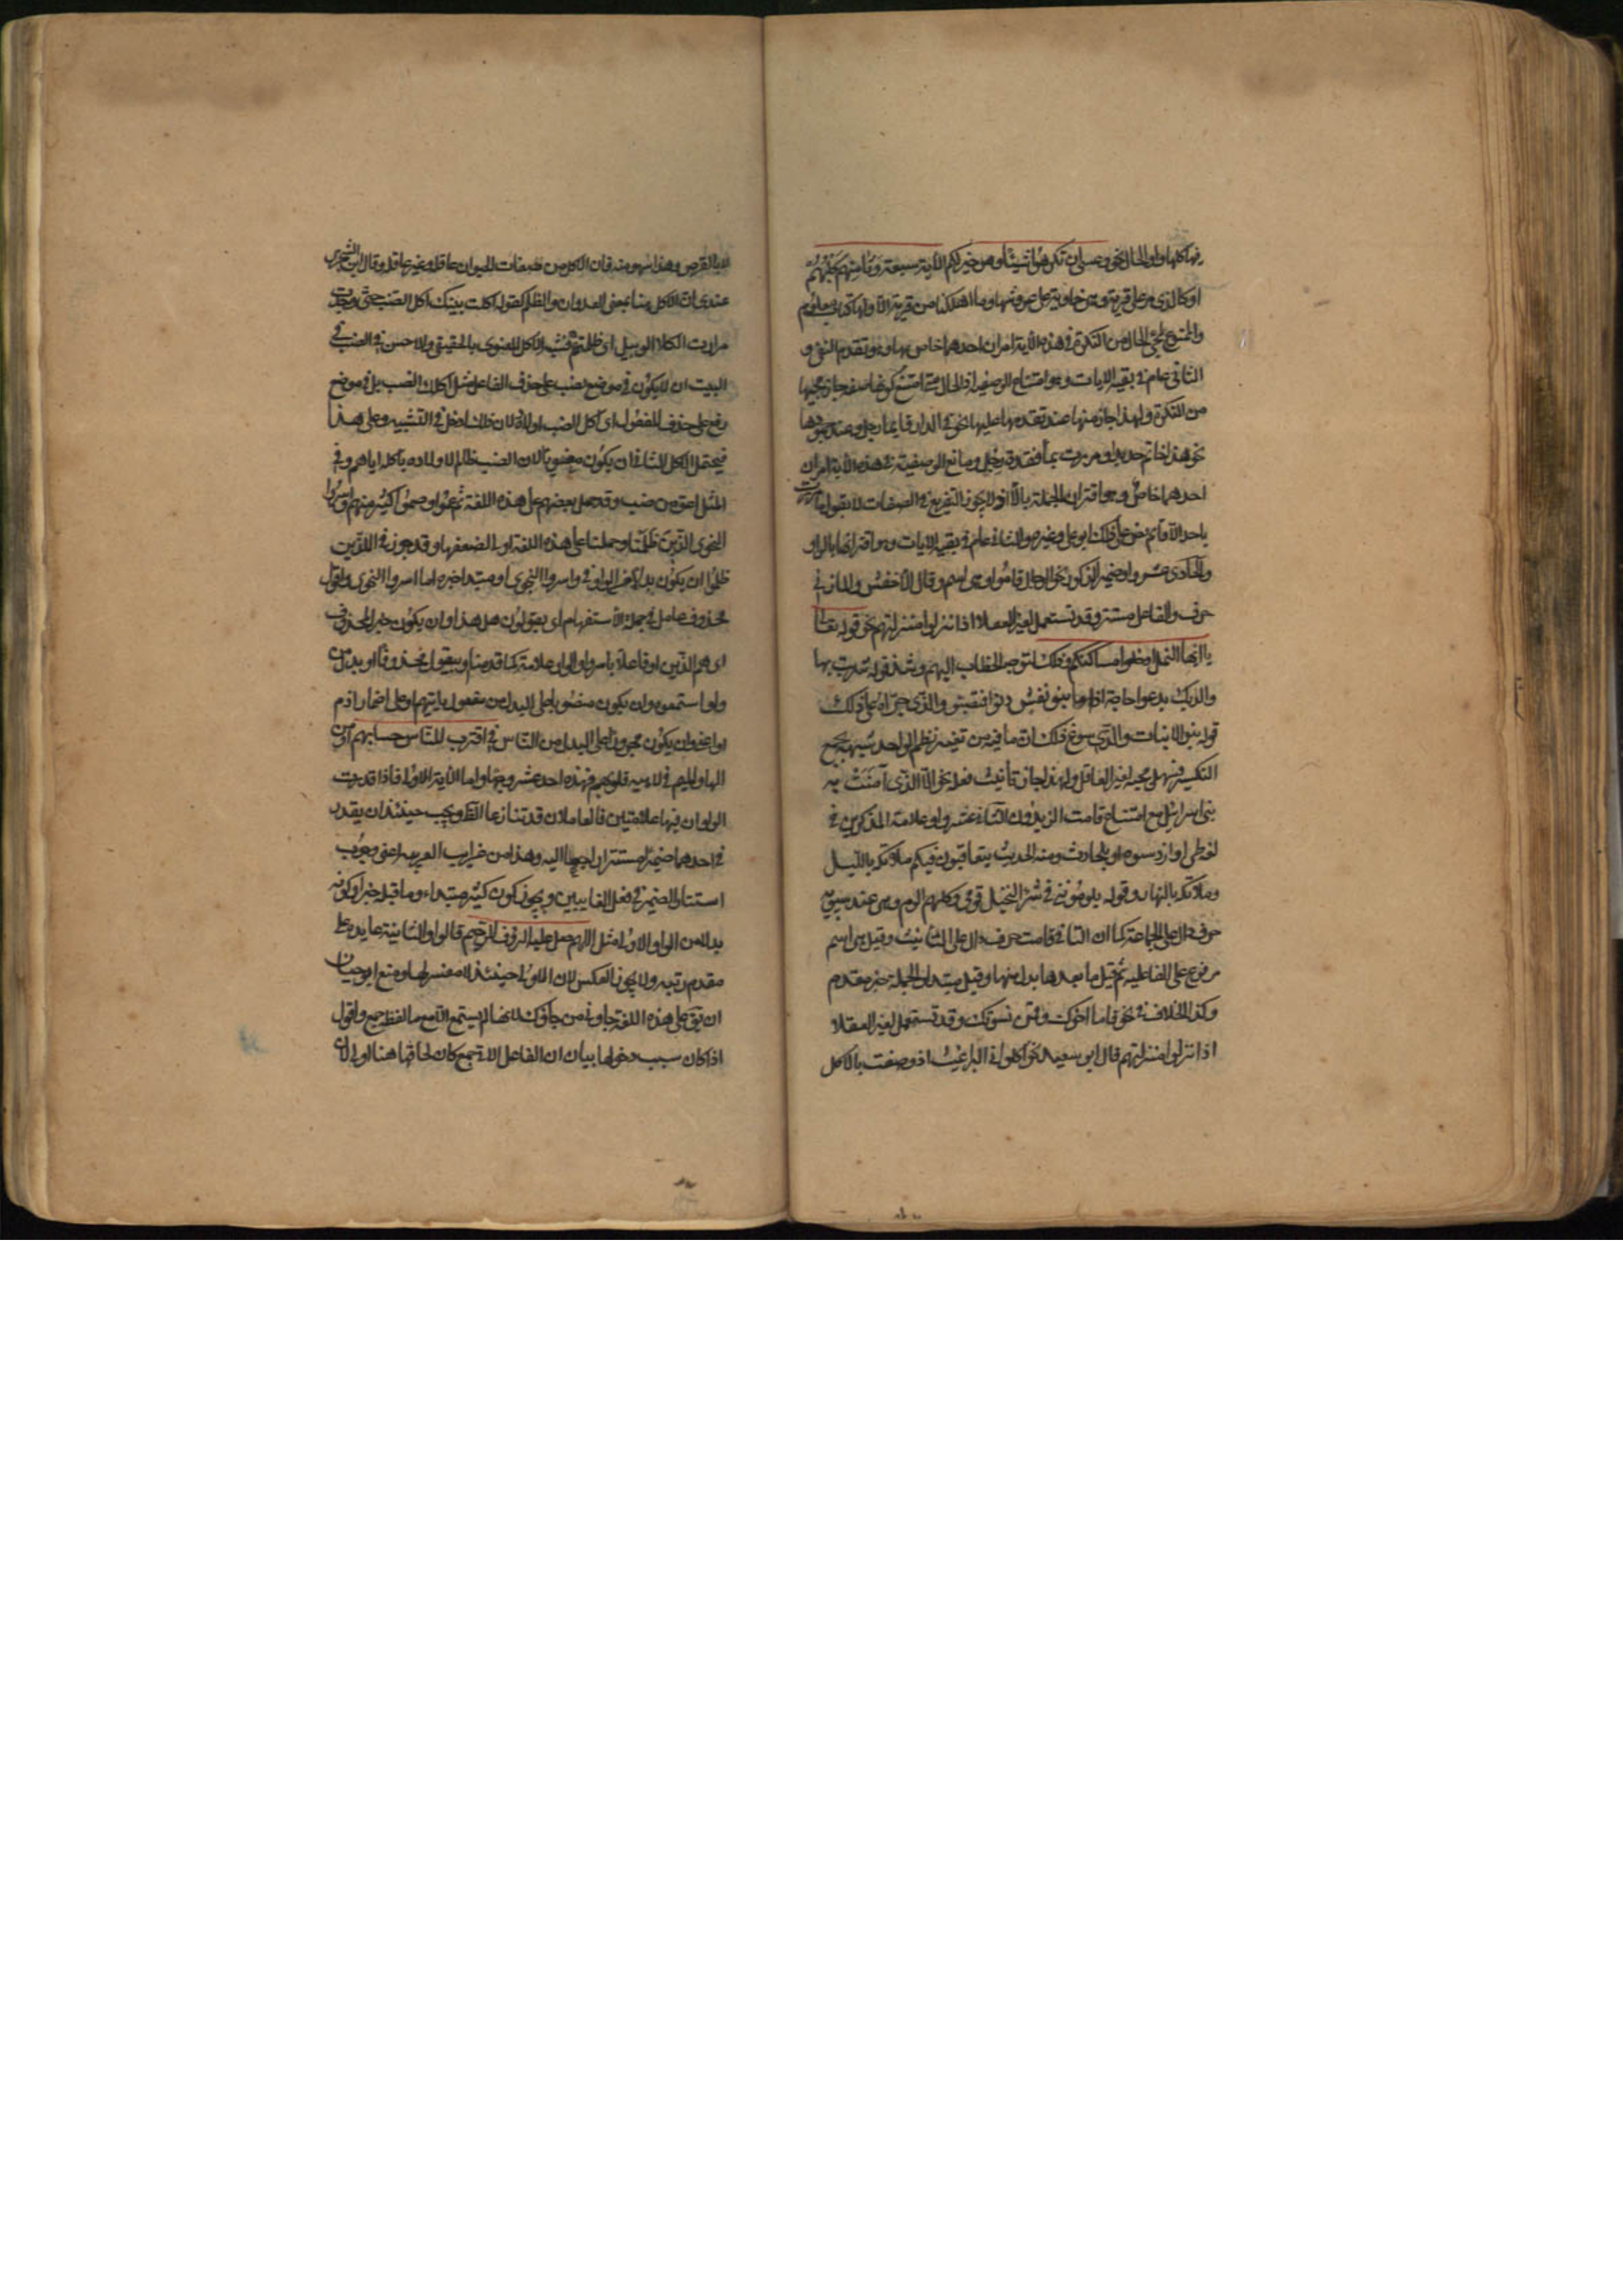 فيها كلها واو الحال نحو وعسى ان تكرهوا شيئا وهو خير لكم الآية سبعة وثامنهم كلبهم
او كالذي مر على قرية وهي خاوية على عروشها وما اهلكنا من قرية الا ولها كتاب معلوم
والمسوغ لمجئ الحال من النكرة في هذه الآية امران احدهما خاص بها وهو تقدم النفي و
الثاني عام في بقية الايات وهو امتناع الوصفية اذ الحال متى امتنع كونها صفة جاز مجيها
من النكرة ولهذا جاز منها عند تقدمها عليها نحو في الدار قايما رجل وعند جمودها
نحو هذا خاتم حديدا ومررت بماء قعدة رجل ومانع الوصفية في هذه الآية امران
احدهما خاص وهو اقتران الجملة بالا اذ لا يجوز التفريغ في الصفات لا يقول ما مررت
باحد الا قائم نص على ذلك ابو علي وغيره والثاني عام في بقية الايات وهو اقترانها بالواو
والحادي عشر واو ضمير الذكور نحو الرجال قاموا وهي اسم وقال الاخفش والمازني
حرف والفاعل مستتر وقد تستعمل لغير العقلا اذا نزلوا منزلتهم نحو قوله تعالى
يا ايها النمل ادخلوا مساكنكم وذلك لتوجيه الخطاب اليهم وشذ قوله شربت بها
والديك يدعوا صباحه اذا ما بنو نعش دنوا فتصوبوا والذي جرأه على ذلك
قوله بنو لا بنات والذي سوغ ذلك ان ما فيه من تغيير نظم الواحد شبهه بجمع
التكسير فسهل مجيه لغير العاقل ولهذا جاز تأنيث فعله نحو الا الذي آمنت به
بنو اسرائيل مع امتناع قامت الزيدون الثاني عشر واو علامة المذكرين في
لغة طي او ازد شنوءة او بلحارث ومنه الحديث يتعاقبون فيكم ملائكة بالليل
وملائكة بالنهار وقوله يلومونني في شرا النخيل قومي وكلهم الوم وهي عند سيبويه
حرف دال على الجماعة كما ان التا في قامت حرف دال على التانيث وقيل هي اسم
مرفوع على الفاعلية ثم قيل ما بعدها بدل منها وقيل مبتدا والجملة خبر مقدم
وكذا الخلاف في نحو قاما اخواك وقمن نسوتك وقد تستعمل لغير العقلا
اذا نزلوا منزلتهم قال ابو سعيد نحو اكلوني البراغيث اذ وصفت بالاكل
لا بالقرص وهذا سهو منه فان الاكل من صفات الحيوان عاقل وغير عاقل وقال ابن الشجري
عندي ان الاكل هنا بمعنى العدوان والظلم كقوله اكلت بنيك اكل الضب حتى وجدت
مرارة الكلا الوبيل اي ظلمتهم وشبه الاكل المعنوي بالحقيقي والاحسن في الضب في
البيت ان لا يكون في موضع نصب على حذف الفاعل مثل اكلك الضب بل في موضع
رفع على حذف المفعول اي اكل الضب اولاده لان ذلك ادخل في التشبيه وعلى هذا
فيحتمل الاكل الثاني ان يكون معنويا لان الضب ظالم لاولاده بأكله اياهم وفي
المثل اعق من ضب وقد حمل بعضهم على هذه اللغة ثم عموا وصموا كثير منهم واسروا
النجوى الذين ظلموا وحملها على هذه اللغة اولى لضعفها وقد جوز في الذين
ظلموا ان يكون بدلا من الواو في واسروا النجوى او مبتدا خبره اما اسروا النجوى واقول
محذوف عامل في جملة الاستفهام اي يقولون هل هذا وان يكون خبرا لمحذوف
اي هم الذين او فاعلا باسروا والواو علامة كما قدمنا او بيقول محذوفا او بدلا من
واو استمعوه وان يكون منصوبا على البدل من مفعول يأتيهم او على اضمار اذم
او اعني وان يكون مجرورا على البدل من الناس في اقترب للناس حسابهم او من
الها والميم في لاهية قلوبهم فهذه احد عشر وجها واما الآية الاولى فاذا قدرت
الواوان فيها علامتين فالعاملان قد تنازعا الظ ويجب حينئذ ان يقدر
في احدهما ضميرا مستترا راجعا اليه وهذا من غرايب العربية اعني وجوب
استتار الضمير في فعل الغايبين ويجوز كون كثير مبتداء وما قبله خبرا وكونه
بدلا من الواو الاولى مثل اللهم صل عليه الرؤف الرحيم قالوا والثانية عايدة على
مقدم رتبة ولا يجوز العكس لان الاولى حينئذ لا مفسر لها ومنع ابو حيان
ان يق على هذه اللغة جاوني من جاؤك لانها لم يستمع الا مع ما لفظه جمع واقول
اذا كان سبب دخولها بيان ان الفاعل الاتي جمع كان لحاقها هنا اولى لان